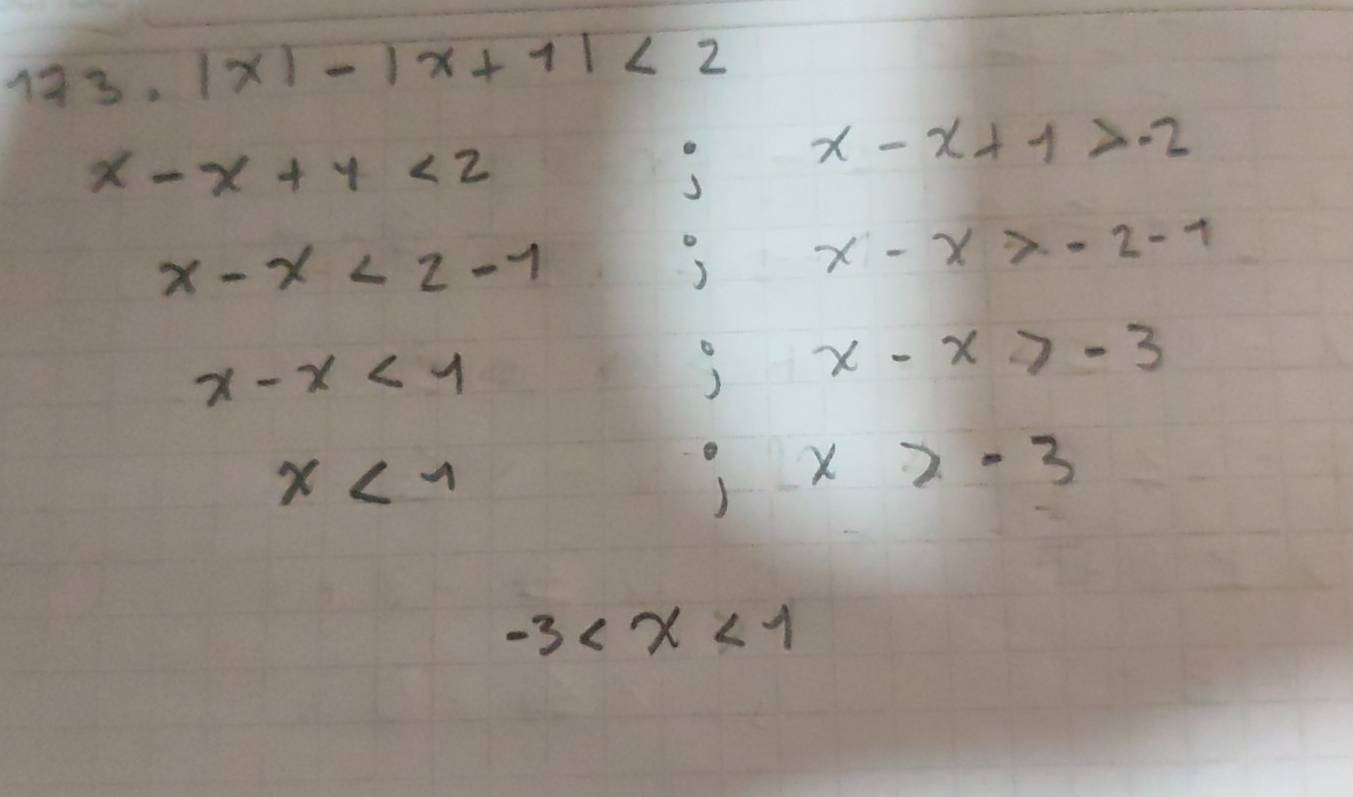 173. |x| - |x + 1| < 2
x - x + 1 < 2 ; x - x + 1 > -2
x - x < 2 - 1 ; x - x > - 2 - 1
x - x < 1 ; x - x > - 3
x < 1 ; x > - 3
-3 < x < 1